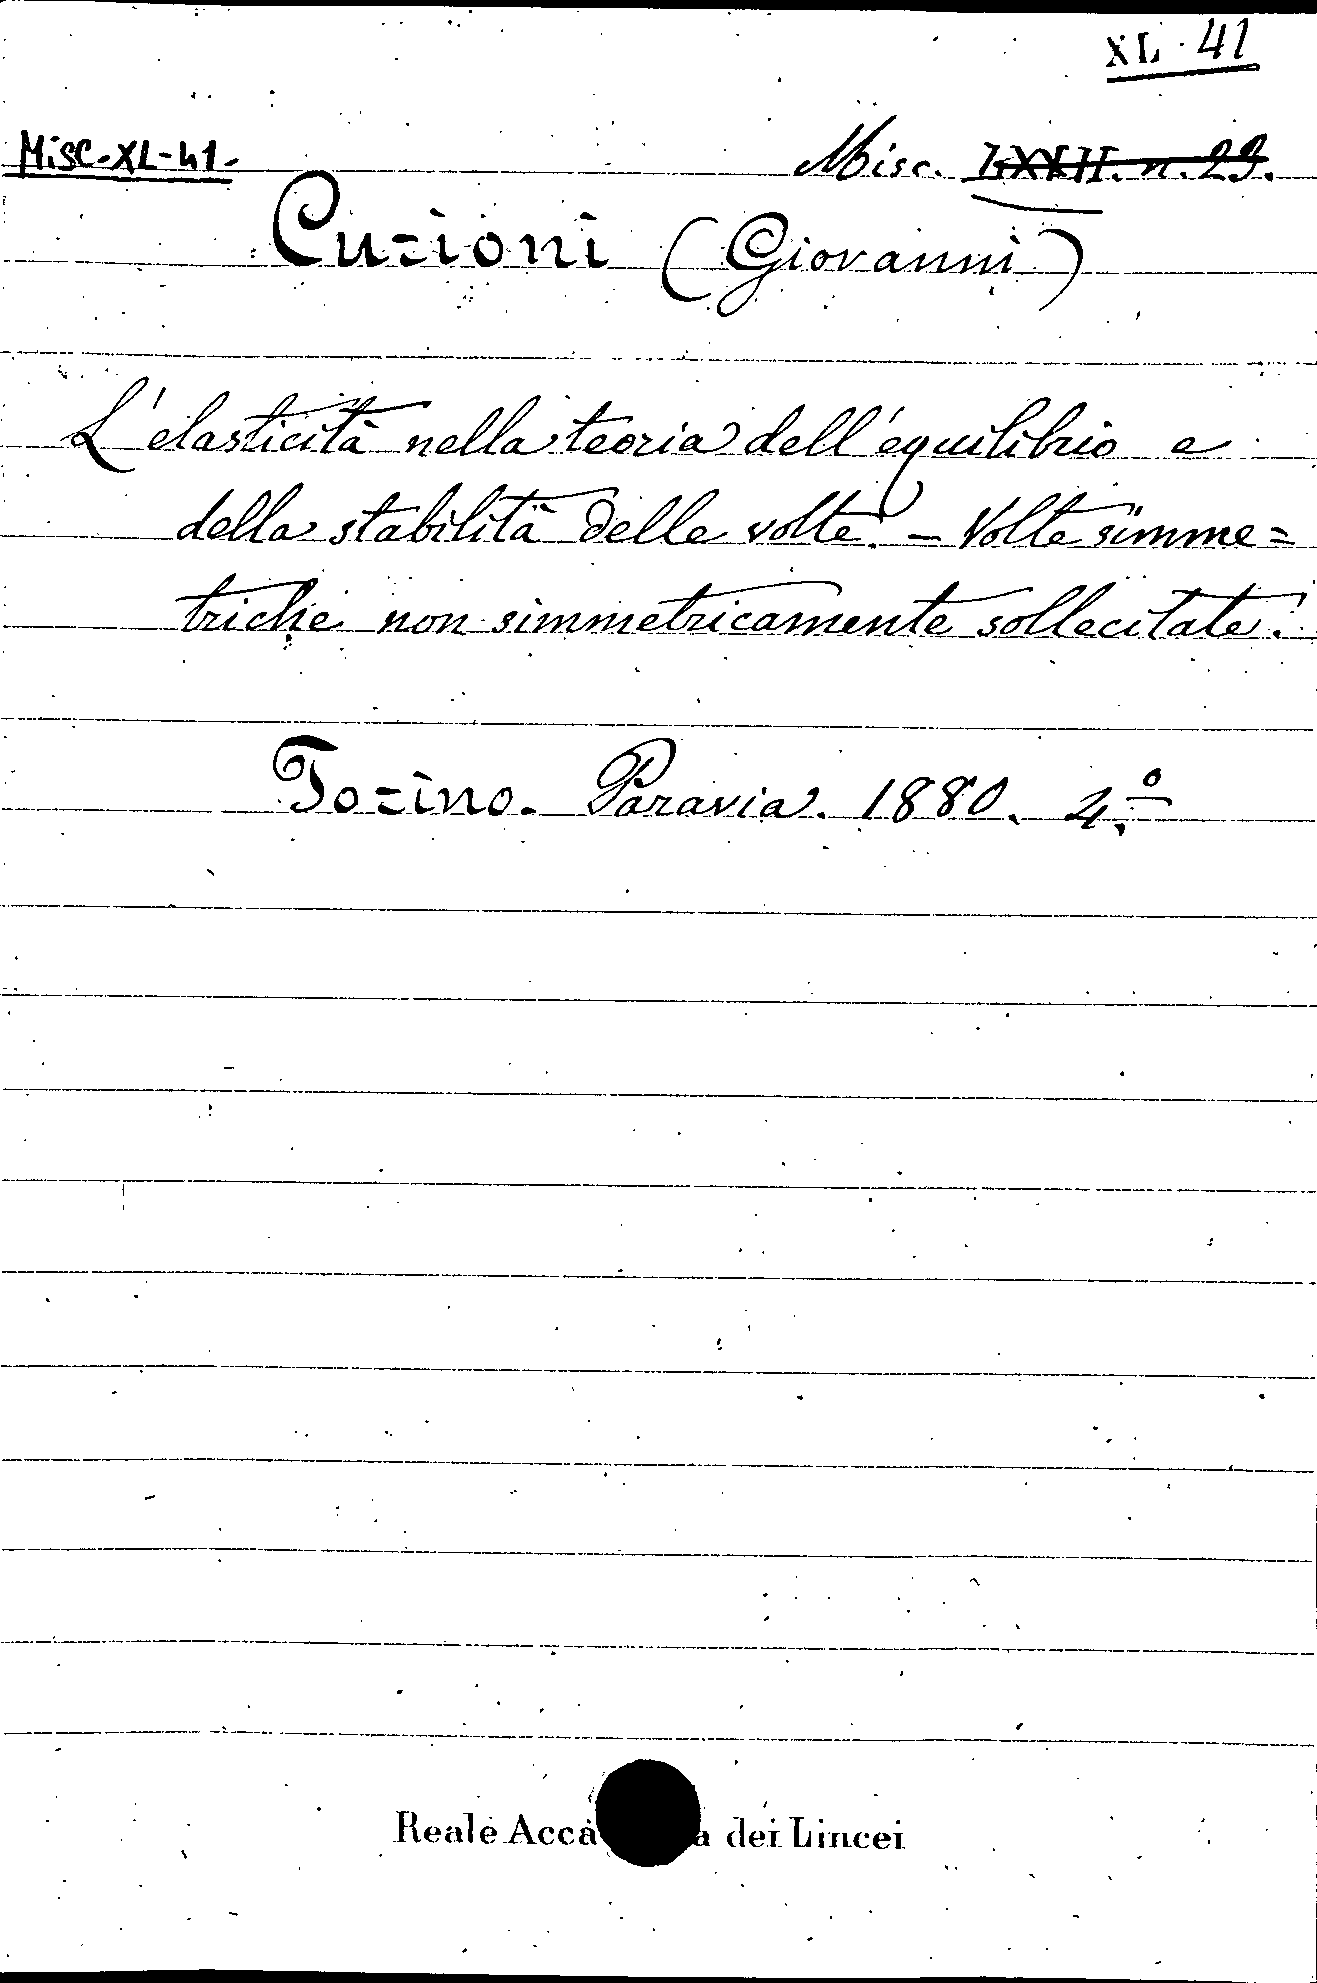 XL · 41
Misc-XL-41-
Misc. LXXII. n. 29.
Curioni (Giovanni)
L'elasticità nella teoria dell'equilibrio e
della stabilità delle volte. - Volte simme=
triche non simmetricamente sollecitate.
Torino. Paravia. 1880. 4.º
Reale Acca a dei Lincei